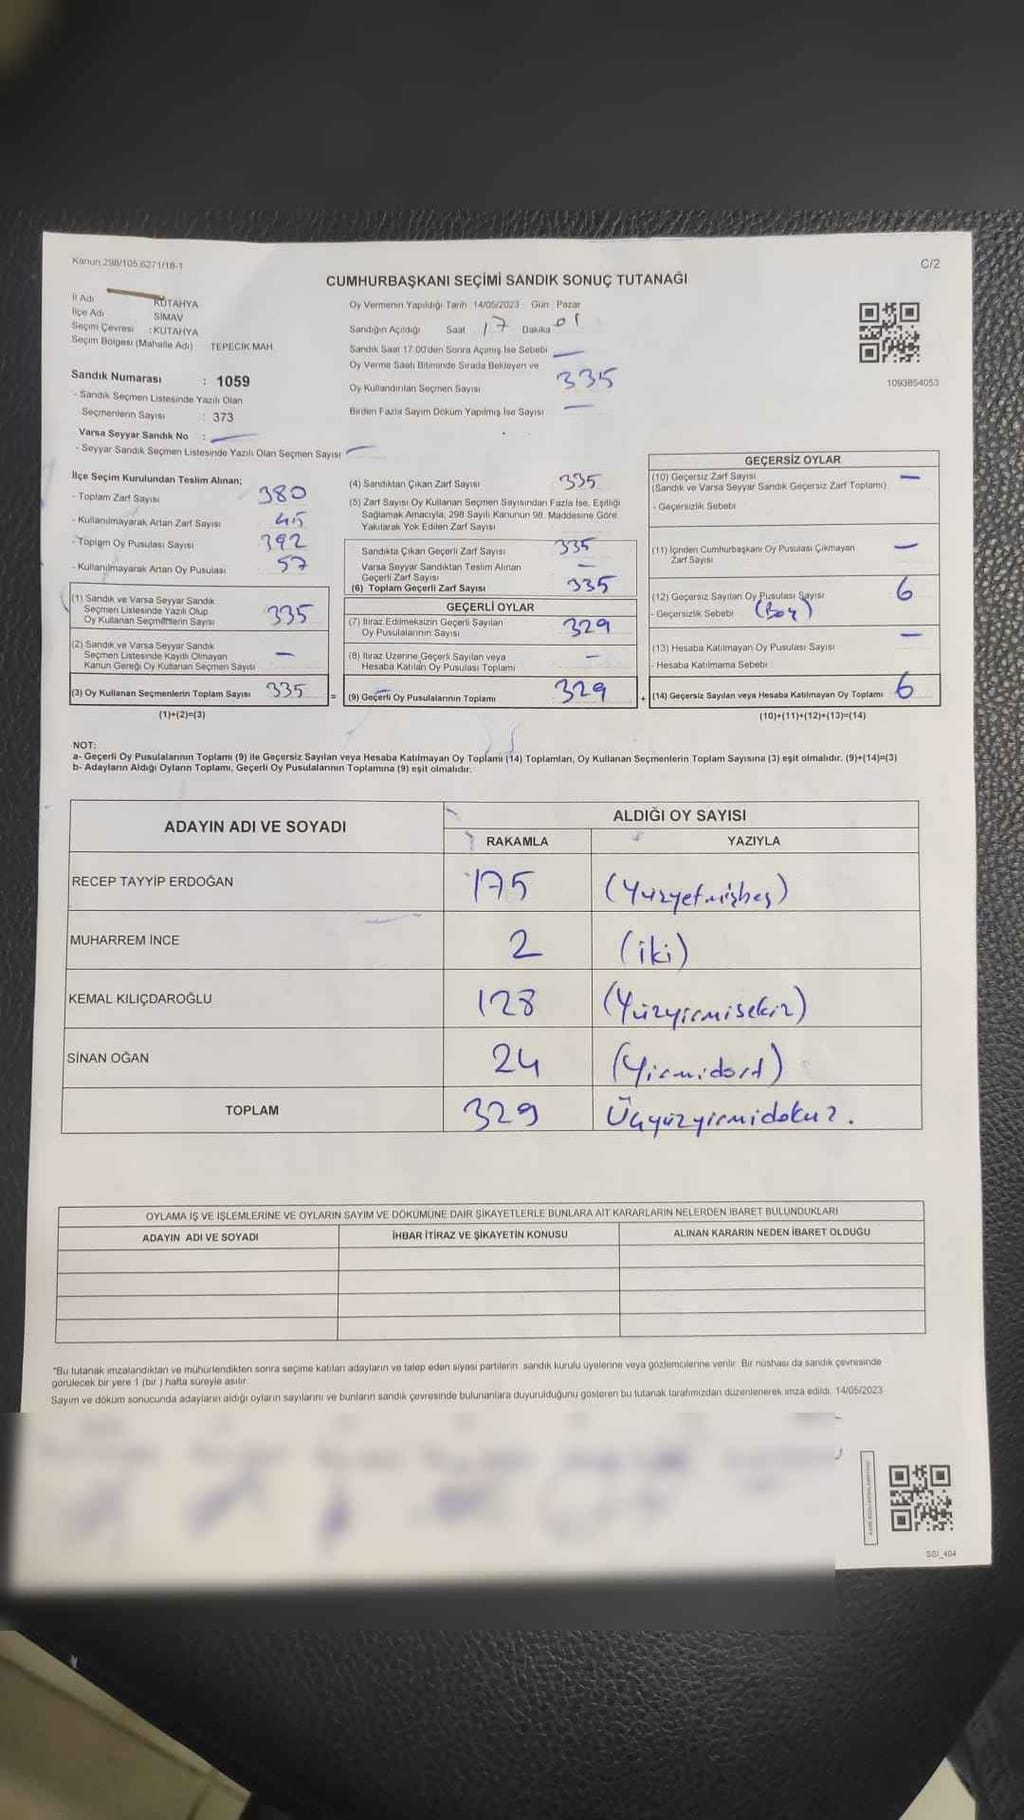 Kanun 298/105 6271/18-1
C/2
CUMHURBAŞKANI SEÇİMİ SANDIK SONUÇ TUTANAĞI
İl Adı KÜTAHYA
İlçe Adı SİMAV
Seçim Çevresi : KÜTAHYA
Seçim Bölgesi (Mahalle Adı) TEPECİK MAH.
Oy Vermenin Yapıldığı Tarih 14/05/2023 Gün Pazar
Sandığın Açıldığı Saat 17 Dakika 01
Sandık Saat 17.00'den Sonra Açımış İse Sebebi —
Oy Verme Saati Bitiminde Sırada Bekleyen ve
Oy Kullandırılan Seçmen Sayısı 335
Birden Fazla Sayım Döküm Yapılmış İse Sayısı —
1093854053
Sandık Numarası : 1059
- Sandık Seçmen Listesinde Yazılı Olan
Seçmenlerin Sayısı : 373
Varsa Seyyar Sandık No : —
- Seyyar Sandık Seçmen Listesinde Yazılı Olan Seçmen Sayısı —
İlçe Seçim Kurulundan Teslim Alınan;
- Toplam Zarf Sayısı 380
- Kullanılmayarak Artan Zarf Sayısı 45
- Toplam Oy Pusulası Sayısı 392
- Kullanılmayarak Artan Oy Pusulası 57
(1) Sandık ve Varsa Seyyar Sandık
Seçmen Listesinde Yazılı Olup
Oy Kullanan Seçmenlerin Sayısı 335
(2) Sandık ve Varsa Seyyar Sandık
Seçmen Listesinde Kayıtlı Olmayan
Kanun Gereği Oy Kullanan Seçmen Sayısı —
(3) Oy Kullanan Seçmenlerin Toplam Sayısı 335 =
(1)+(2)=(3)
(4) Sandıktan Çıkan Zarf Sayısı 335
(5) Zarf Sayısı Oy Kullanan Seçmen Sayısından Fazla İse, Eşitliği
Sağlamak Amacıyla, 298 Sayılı Kanunun 98. Maddesine Göre
Yakılarak Yok Edilen Zarf Sayısı
Sandıkta Çıkan Geçerli Zarf Sayısı 335
Varsa Seyyar Sandıktan Teslim Alınan
Geçerli Zarf Sayısı —
(6) Toplam Geçerli Zarf Sayısı 335
GEÇERLİ OYLAR
(7) İtiraz Edilmeksizin Geçerli Sayılan
Oy Pusulalarının Sayısı 329
(8) İtiraz Üzerine Geçerli Sayılan veya
Hesaba Katılan Oy Pusulası Toplamı —
(9) Geçerli Oy Pusulalarının Toplamı 329 +
GEÇERSİZ OYLAR
(10) Geçersiz Zarf Sayısı —
(Sandık ve Varsa Seyyar Sandık Geçersiz Zarf Toplamı)
- Geçersizlik Sebebi
(11) İçinden Cumhurbaşkanı Oy Pusulası Çıkmayan
Zarf Sayısı —
(12) Geçersiz Sayılan Oy Pusulası Sayısı 6
- Geçersizlik Sebebi (Boş)
(13) Hesaba Katılmayan Oy Pusulası Sayısı —
- Hesaba Katılmama Sebebi
(14) Geçersiz Sayılan veya Hesaba Katılmayan Oy Toplamı 6
(10)+(11)+(12)+(13)=(14)
NOT:
a- Geçerli Oy Pusulalarının Toplamı (9) ile Geçersiz Sayılan veya Hesaba Katılmayan Oy Toplamı (14) Toplamları, Oy Kullanan Seçmenlerin Toplam Sayısına (3) eşit olmalıdır. (9)+(14)=(3)
b- Adayların Aldığı Oyların Toplamı, Geçerli Oy Pusulalarının Toplamına (9) eşit olmalıdır.
ADAYIN ADI VE SOYADI
ALDIĞI OY SAYISI
RAKAMLA YAZIYLA
RECEP TAYYİP ERDOĞAN 175 (Yüzyetmişbeş)
MUHARREM İNCE 2 (iki)
KEMAL KILIÇDAROĞLU 128 (Yüzyirmisekiz)
SİNAN OĞAN 24 (Yirmidört)
TOPLAM 329 Üçyüzyirmidokuz.
OYLAMA İŞ VE İŞLEMLERİNE VE OYLARIN SAYIM VE DÖKÜMÜNE DAİR ŞİKAYETLERLE BUNLARA AİT KARARLARIN NELERDEN İBARET BULUNDUKLARI
ADAYIN ADI VE SOYADI İHBAR İTİRAZ VE ŞİKAYETİN KONUSU ALINAN KARARIN NEDEN İBARET OLDUĞU
*Bu tutanak imzalandıktan ve mühürlendikten sonra seçime katılan adayların ve talep eden siyasi partilerin sandık kurulu üyelerine veya gözlemcilerine verilir. Bir nüshası da sandık çevresinde
görülecek bir yere 1 (bir) hafta süreyle asılır.
Sayım ve döküm sonucunda adayların aldığı oyların sayılarını ve bunların sandık çevresinde bulunanlara duyurulduğunu gösteren bu tutanak tarafımızdan düzenlenerek imza edildi. 14/05/2023
SSI_404